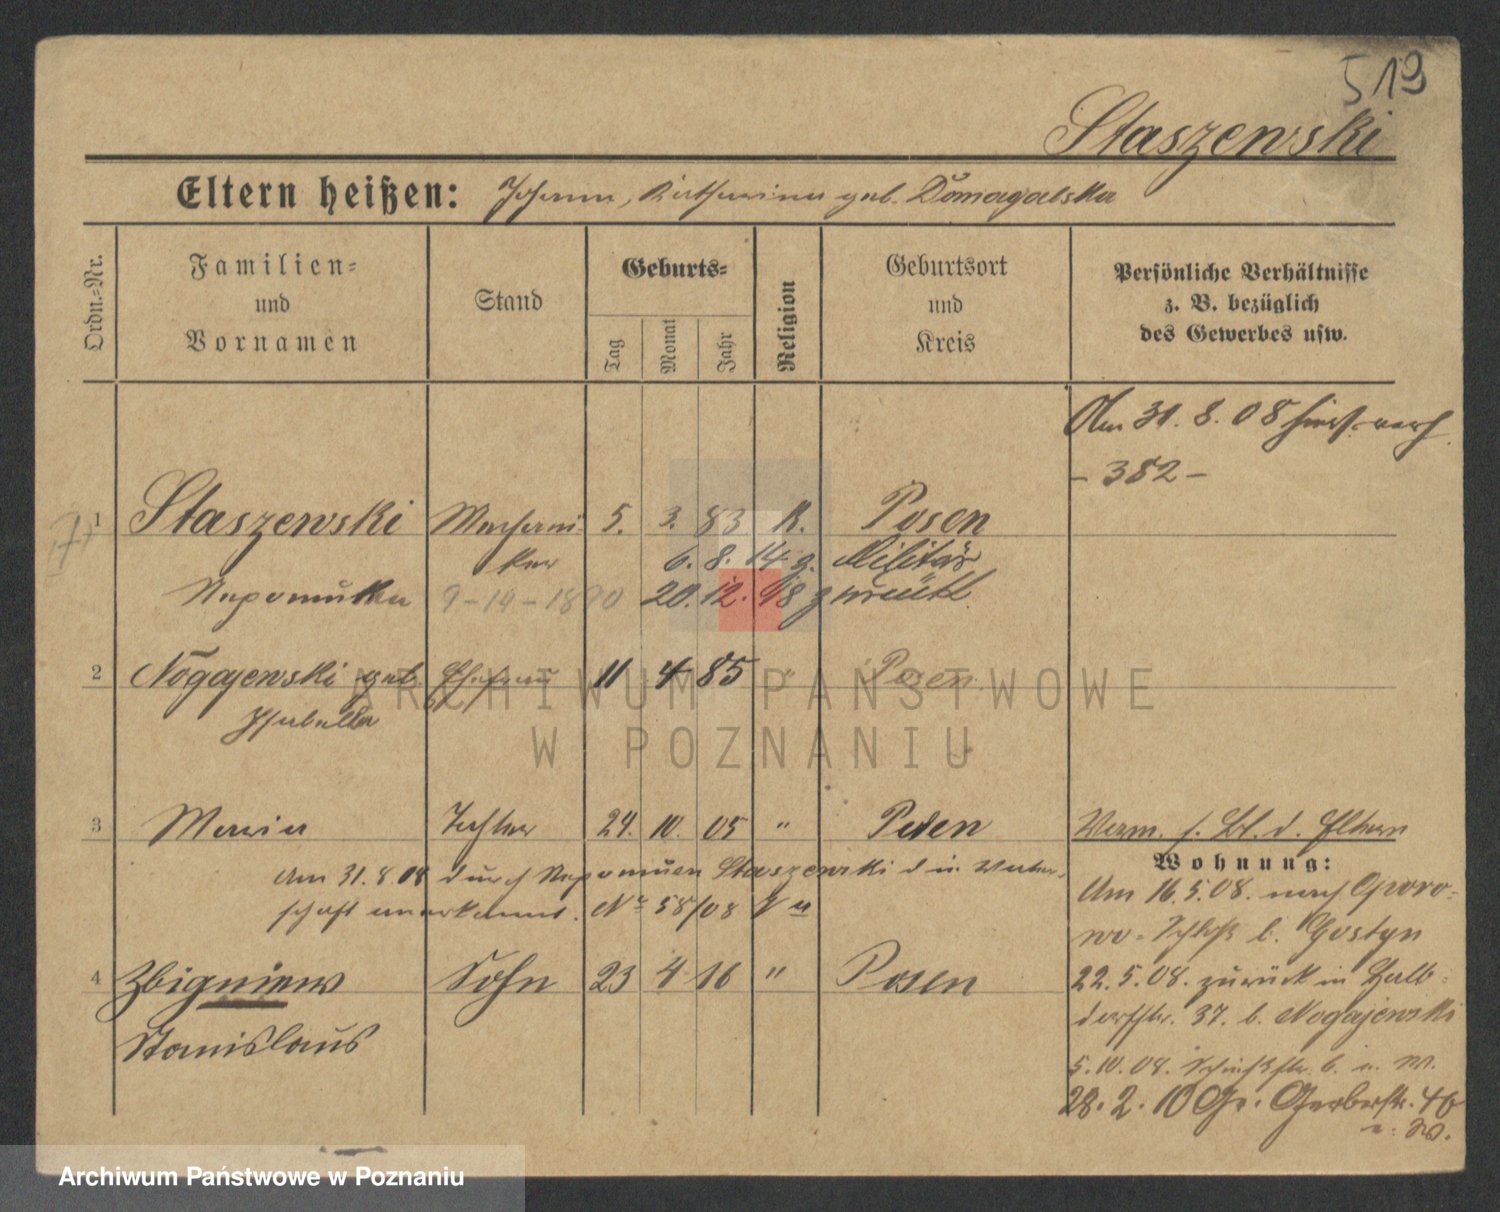 519
Staszewski
Eltern heißen: Johann, Katharina geb. Domagalska
Ordn.-Nr.
Familien-
und
Vornamen
Stand
Geburts-
Tag
Monat
Jahr
Religion
Geburtsort
und
Kreis
Persönliche Verhältnisse
z. B. bezüglich
des Gewerbes usw.
Am 31. 8. 08 hier verh.
- 382 -
1 Staszewski Mechani- 5. 3. 83 K. Posen
ker 6. 8. 14 z. Militär
9-14-1890 20. 12. 18 zurück
2 Nogajewski geb. Ehefrau 11 4 85 " Posen
Isabella
3 Maria Tochter 24. 10. 05 " Posen
d. Eltern
Am 31.8.08 durch Nepomucen Staszewski d. in Vater-
schaft anerkannt. Nr 58/08
Wohnung:
Am 16.5.08. nach Goro-
wo-Schloß b. Gostyn
4 Zbigniew Sohn 23 4 16 " Posen
Stanislaus
22.5.08. zurück in Halb-
dorfstr. 37. b. Nogajewski
5.10.08.
28.2.10 Gr. Gerberstr. 40
ARCHIWUM PAŃSTWOWE
W POZNANIU
Archiwum Państwowe w Poznaniu